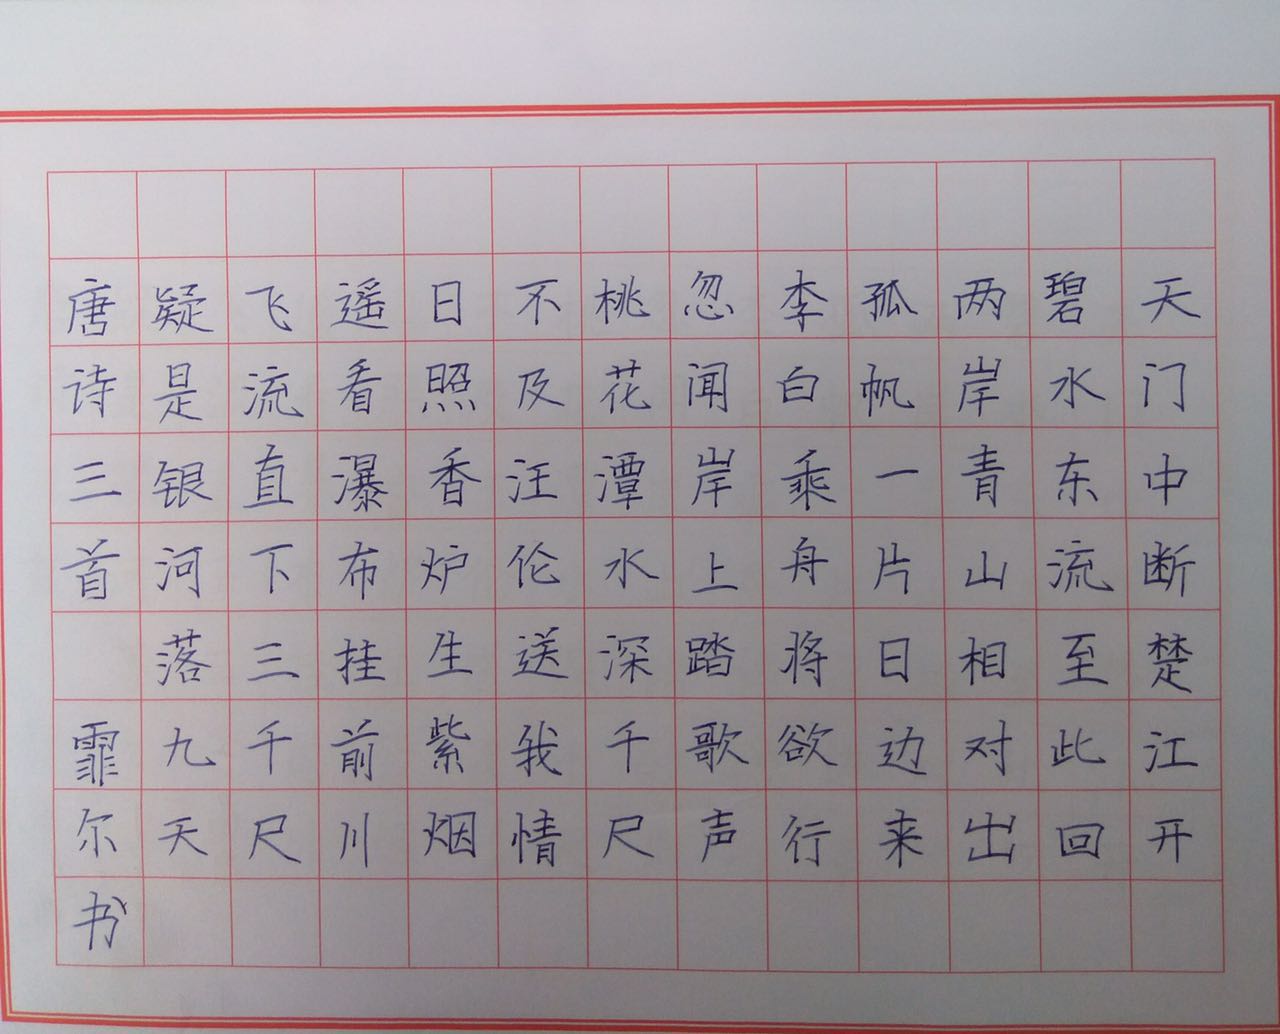 天门中断楚江开
碧水东流至此回
两岸青山相对出
孤帆一片日边来
李白乘舟将欲行
忽闻岸上踏歌声
桃花潭水深千尺
不及汪伦送我情
日照香炉生紫烟
遥看瀑布挂前川
飞流直下三千尺
疑是银河落九天
唐诗三首 霏尔书